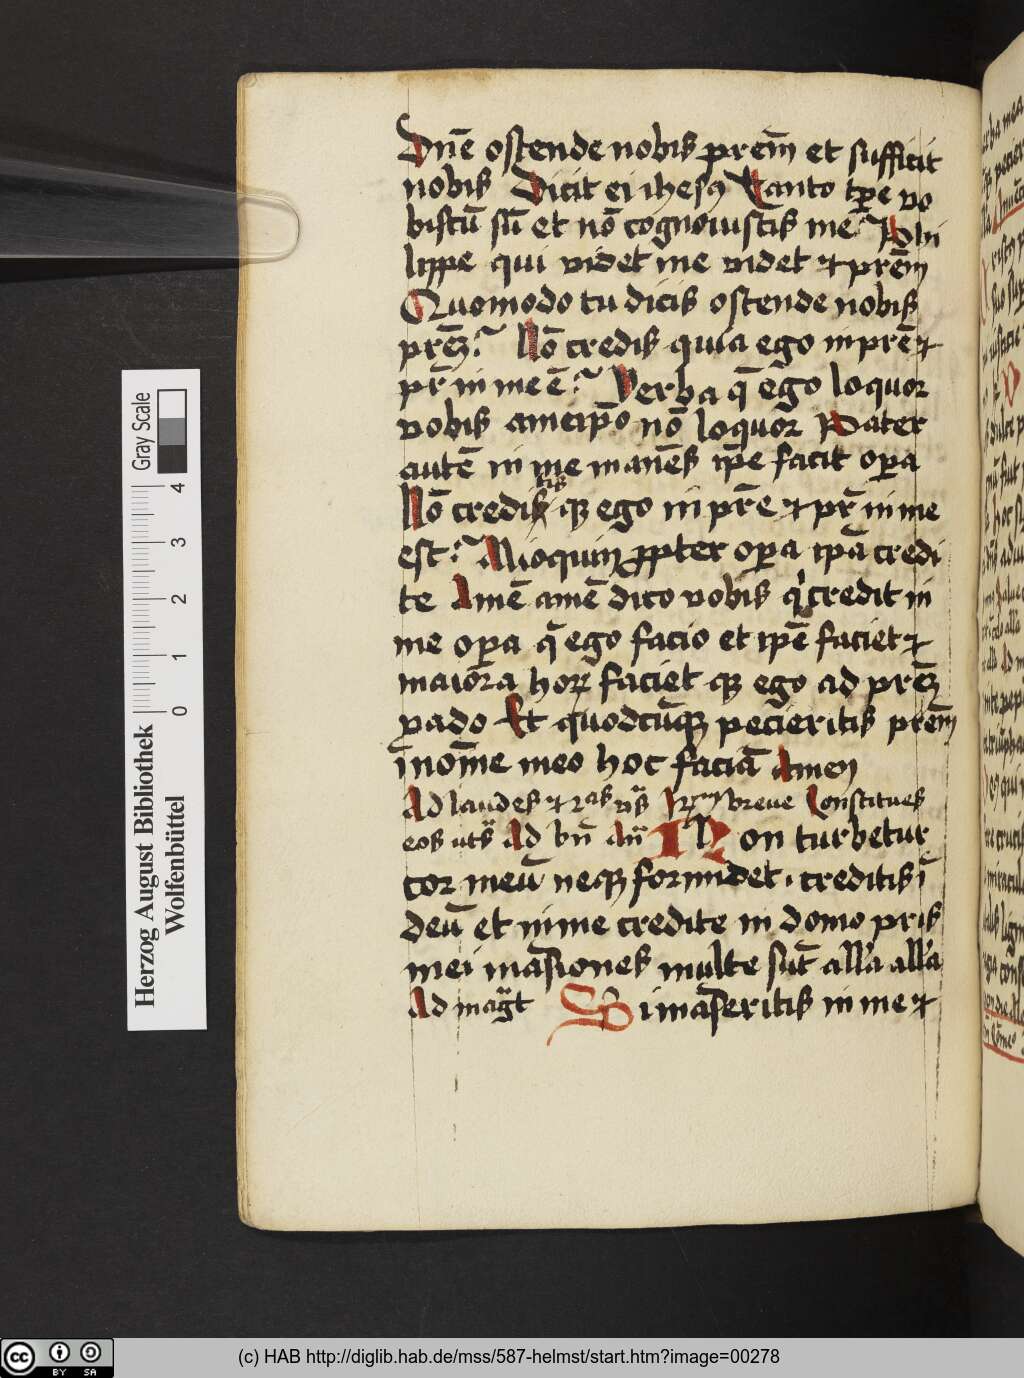 Dn̄e ostende nobis prem̄ et sufficit
nobis Dicit ei ihesꝯ Tanto tp̄e vo
biscū sū et nō cognouistis me Phi
lippe qui videt me videt ⁊ prēm
Quomodo tu dicis ostende nobis
prēꝫ? Nō credis quia ego in prē ⁊
pr̄ in me ē? Verba q̄ ego loquor
vobis ameip̄o nō loquor Pater
autē in me manēs ip̄e facit oꝑa
Nō credis tis qꝫ ego in pr̄e ⁊ pr̄ in me
est? Alioquin ꝓpter oꝑa ip̄a credi
te Amē amē dico vobis q̇ credit in
me oꝑa q̄ ego facio et ip̄e faciet ⁊
maiora hoꝝ faciet qꝫ ego ad prēꝫ
vado Et quodcūqꝫ pecieritis prēm
ī nom̄e meo hoc faciā amen
Ad laudes ⁊ 2as breue Constitues
eos Ad bn̄ Añ Non turbetur
cor meū neqꝫ formidet · creditis ī
deū et in me credite in domo pris
mei māsiones multe sūt all'a all'a
Ad mag̃t Si māseritis in me ⁊
Herzog August Bibliothek
Wolfenbüttel
0 1 2 3 4
Gray Scale
(c) HAB http://diglib.hab.de/mss/587-helmst/start.htm?image=00278
cc BY SA